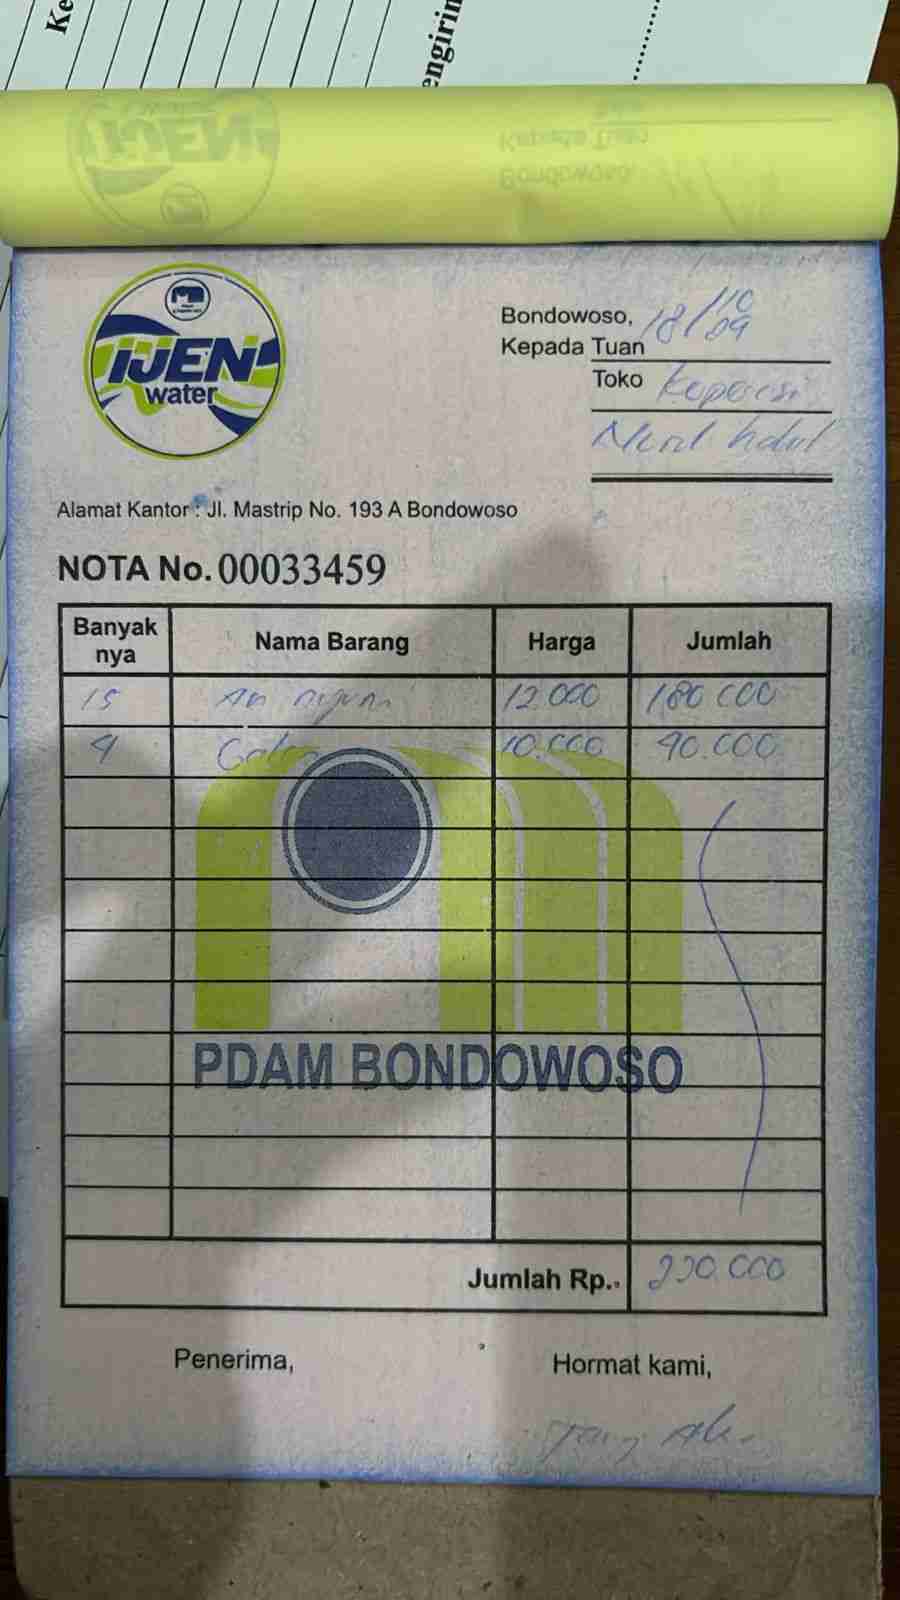 Ke
engirin
Kepada Tuan
Bondowoso,
IJEN
water
Bondowoso, 18/10
09
Kepada Tuan
Toko Koperasi
Nurul
Alamat Kantor : Jl. Mastrip No. 193 A Bondowoso
NOTA No. 00033459
Banyak nya Nama Barang Harga Jumlah
15 12.000 180 000
4 Galon 10.000 40.000
PDAM BONDOWOSO
Jumlah Rp. 220.000
Penerima, Hormat kami,